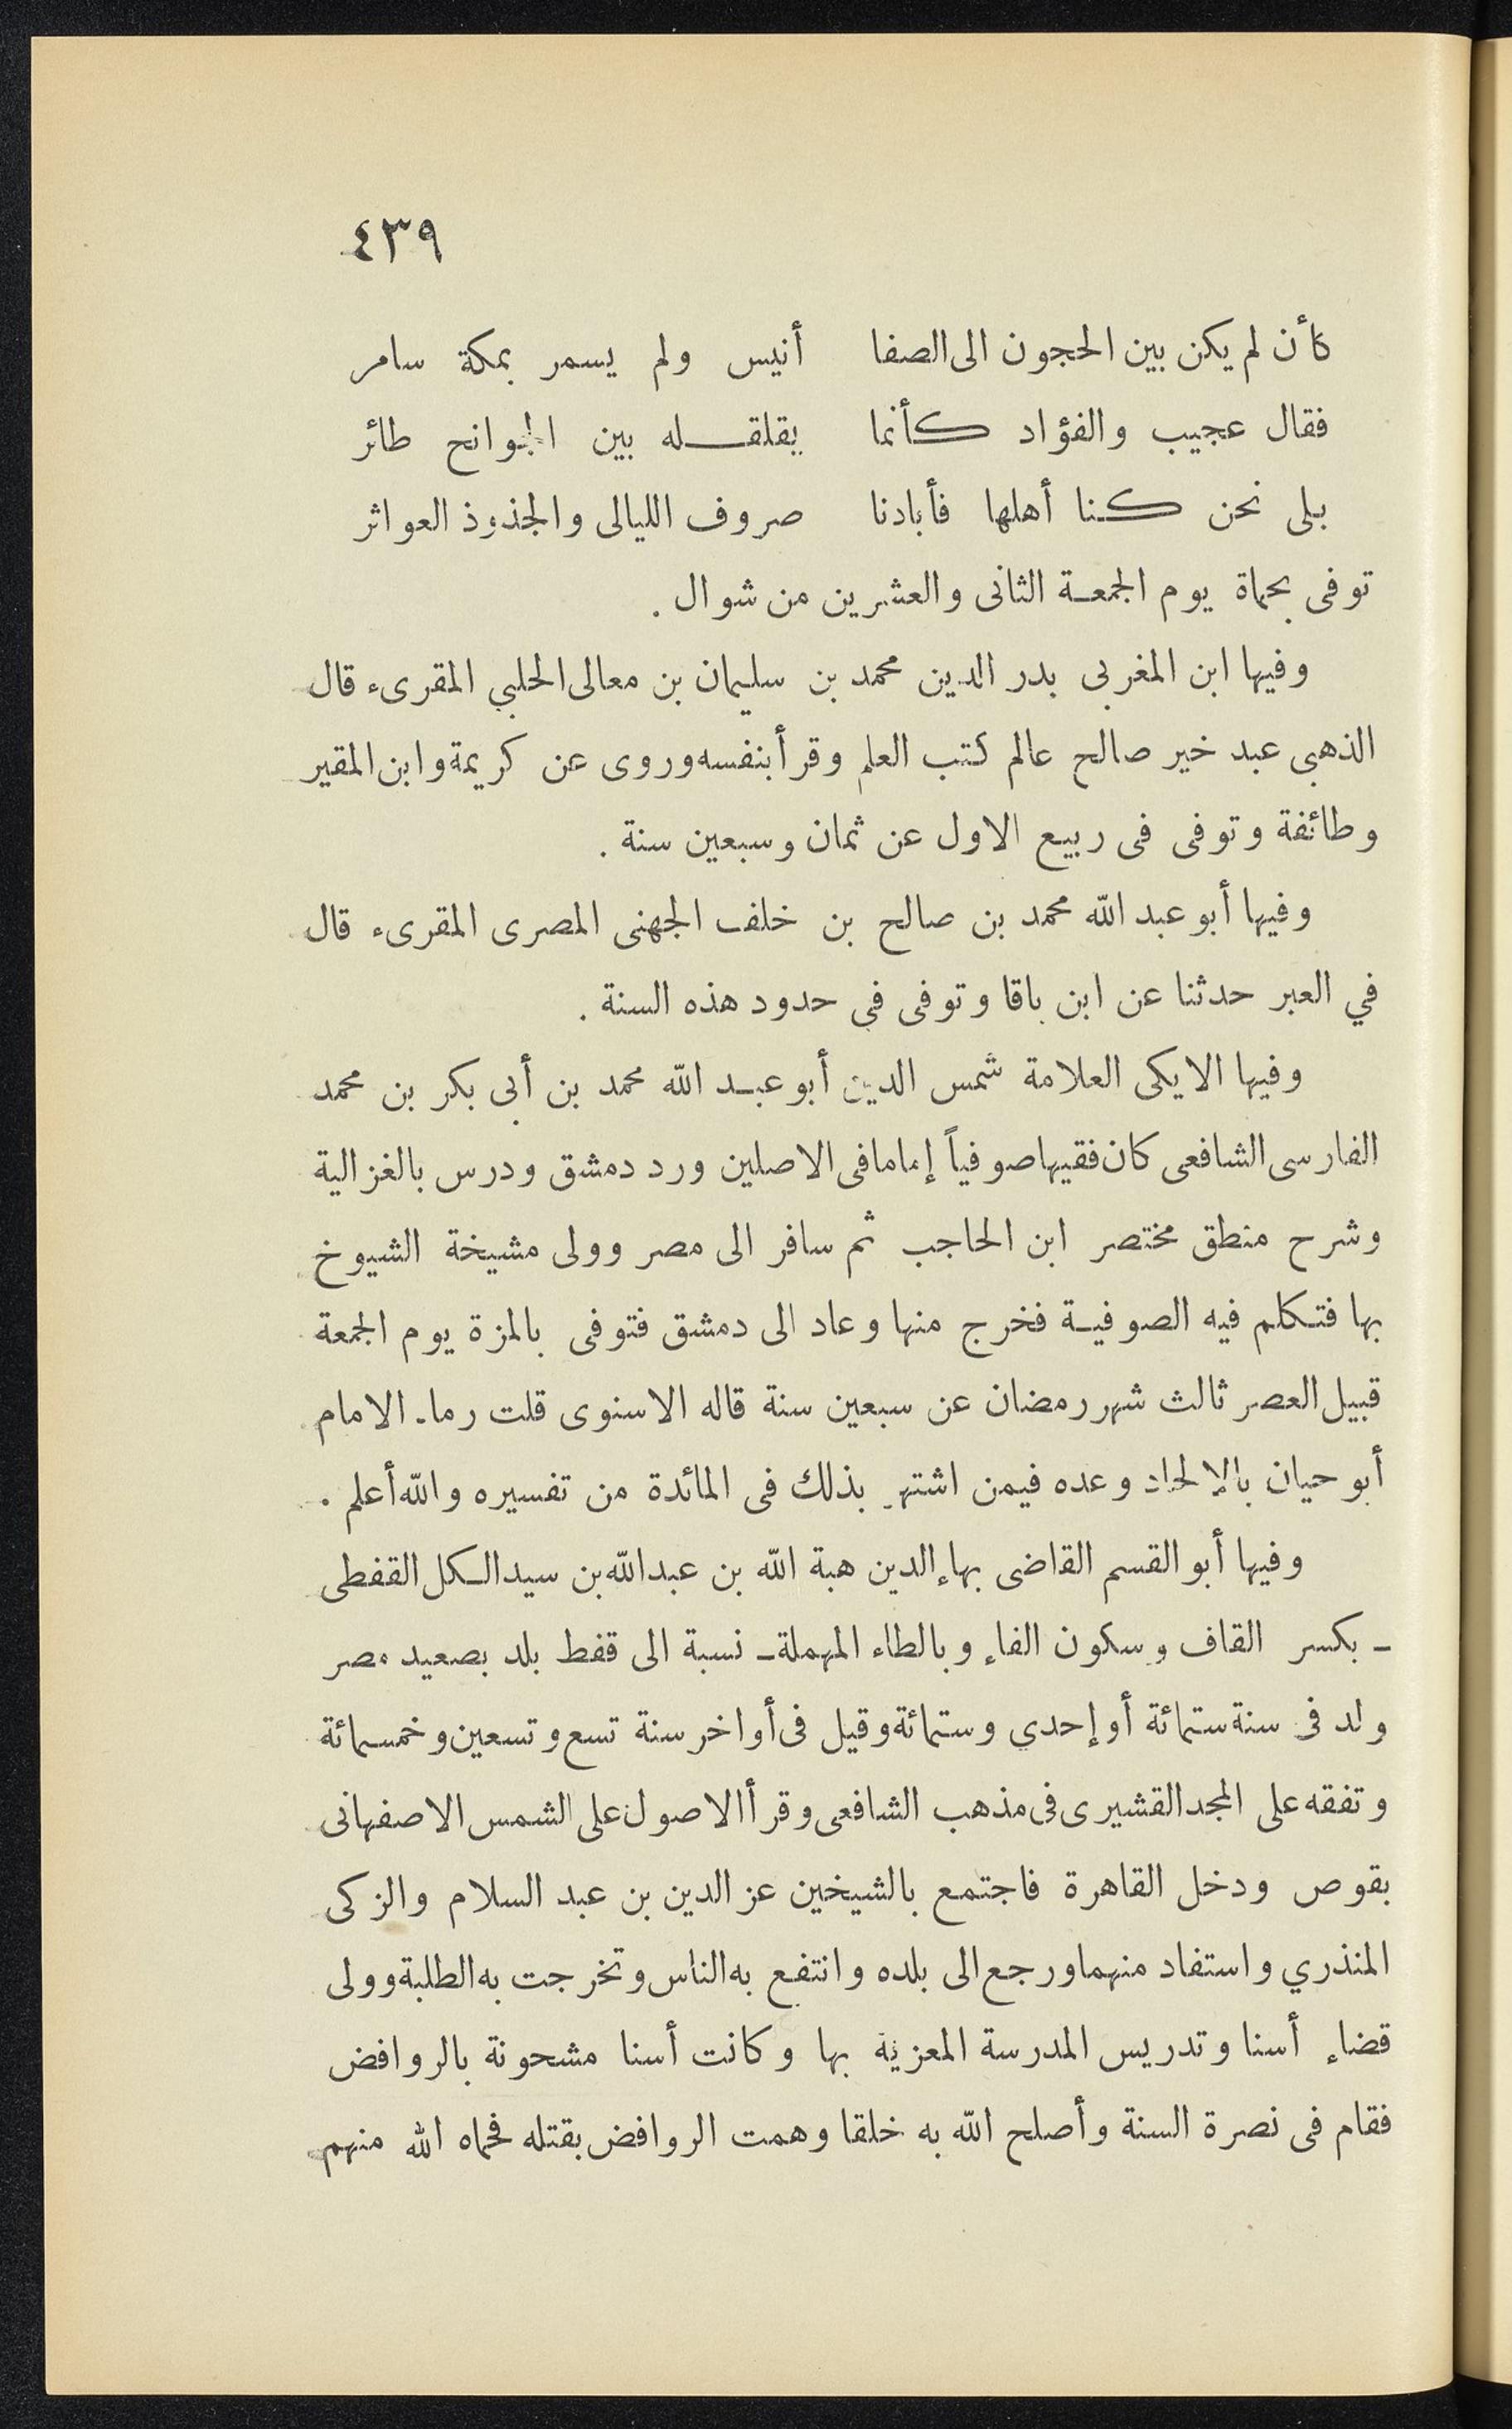 ٤٣٩
كأن لم يكن بين الحجون الى الصفا أنيس ولم يسمر بمكة سامر
فقال عجيب والفؤاد كأنما يقلقله بين الجوانح طائر
بلى نحن كنا أهلها فأبادنا صروف الليالى والجذوذ العواثر
توفى بحماة يوم الجمعة الثانى والعشرين من شوال .
وفيها ابن المغربى بدر الدين محمد بن سليمان بن معالى الحلبي المقرىء قال
الذهبى عبد خير صالح عالم كتب العلم وقرأ بنفسه وروى عن كريمة وابن المقير
وطائفة وتوفى فى ربيع الاول عن ثمان وسبعين سنة .
وفيها أبو عبد الله محمد بن صالح بن خلف الجهنى المصرى المقرىء قال
في العبر حدثنا عن ابن باقا وتوفى فى حدود هذه السنة .
وفيها الايكى العلامة شمس الدين أبو عبد الله محمد بن أبى بكر بن محمد
الفارسى الشافعى كان فقيها صوفياً إماما فى الاصلين ورد دمشق ودرس بالغزالية
وشرح منطق مختصر ابن الحاجب ثم سافر الى مصر وولى مشيخة الشيوخ
بها فتكلم فيه الصوفية فخرج منها وعاد الى دمشق فتوفى بالمزة يوم الجمعة
قبيل العصر ثالث شهر رمضان عن سبعين سنة قاله الاسنوى قلت رماه الامام
أبو حيان بالإلحاد وعده فيمن اشتهر بذلك فى المائدة من تفسيره والله أعلم .
وفيها أبو القسم القاضى بهاء الدين هبة الله بن عبد الله بن سيد الكل القفطى
ـ بكسر القاف وسكون الفاء وبالطاء المهملة ـ نسبة الى قفط بلد بصعيد مصر
ولد فى سنة ستمائة أو إحدي وستمائة وقيل فى أواخر سنة تسع وتسعين وخمسمائة
وتفقه على المجد القشيرى فى مذهب الشافعى وقرأ الاصول على الشمس الاصفهانى
بقوص ودخل القاهرة فاجتمع بالشيخين عز الدين بن عبد السلام والزكى
المنذري واستفاد منهما ورجع الى بلده وانتفع به الناس وتخرجت به الطلبة وولى
قضاء أسنا وتدريس المدرسة المعزية بها وكانت أسنا مشحونة بالروافض
فقام فى نصرة السنة وأصلح الله به خلقا وهمت الروافض بقتله فحماه الله منهم